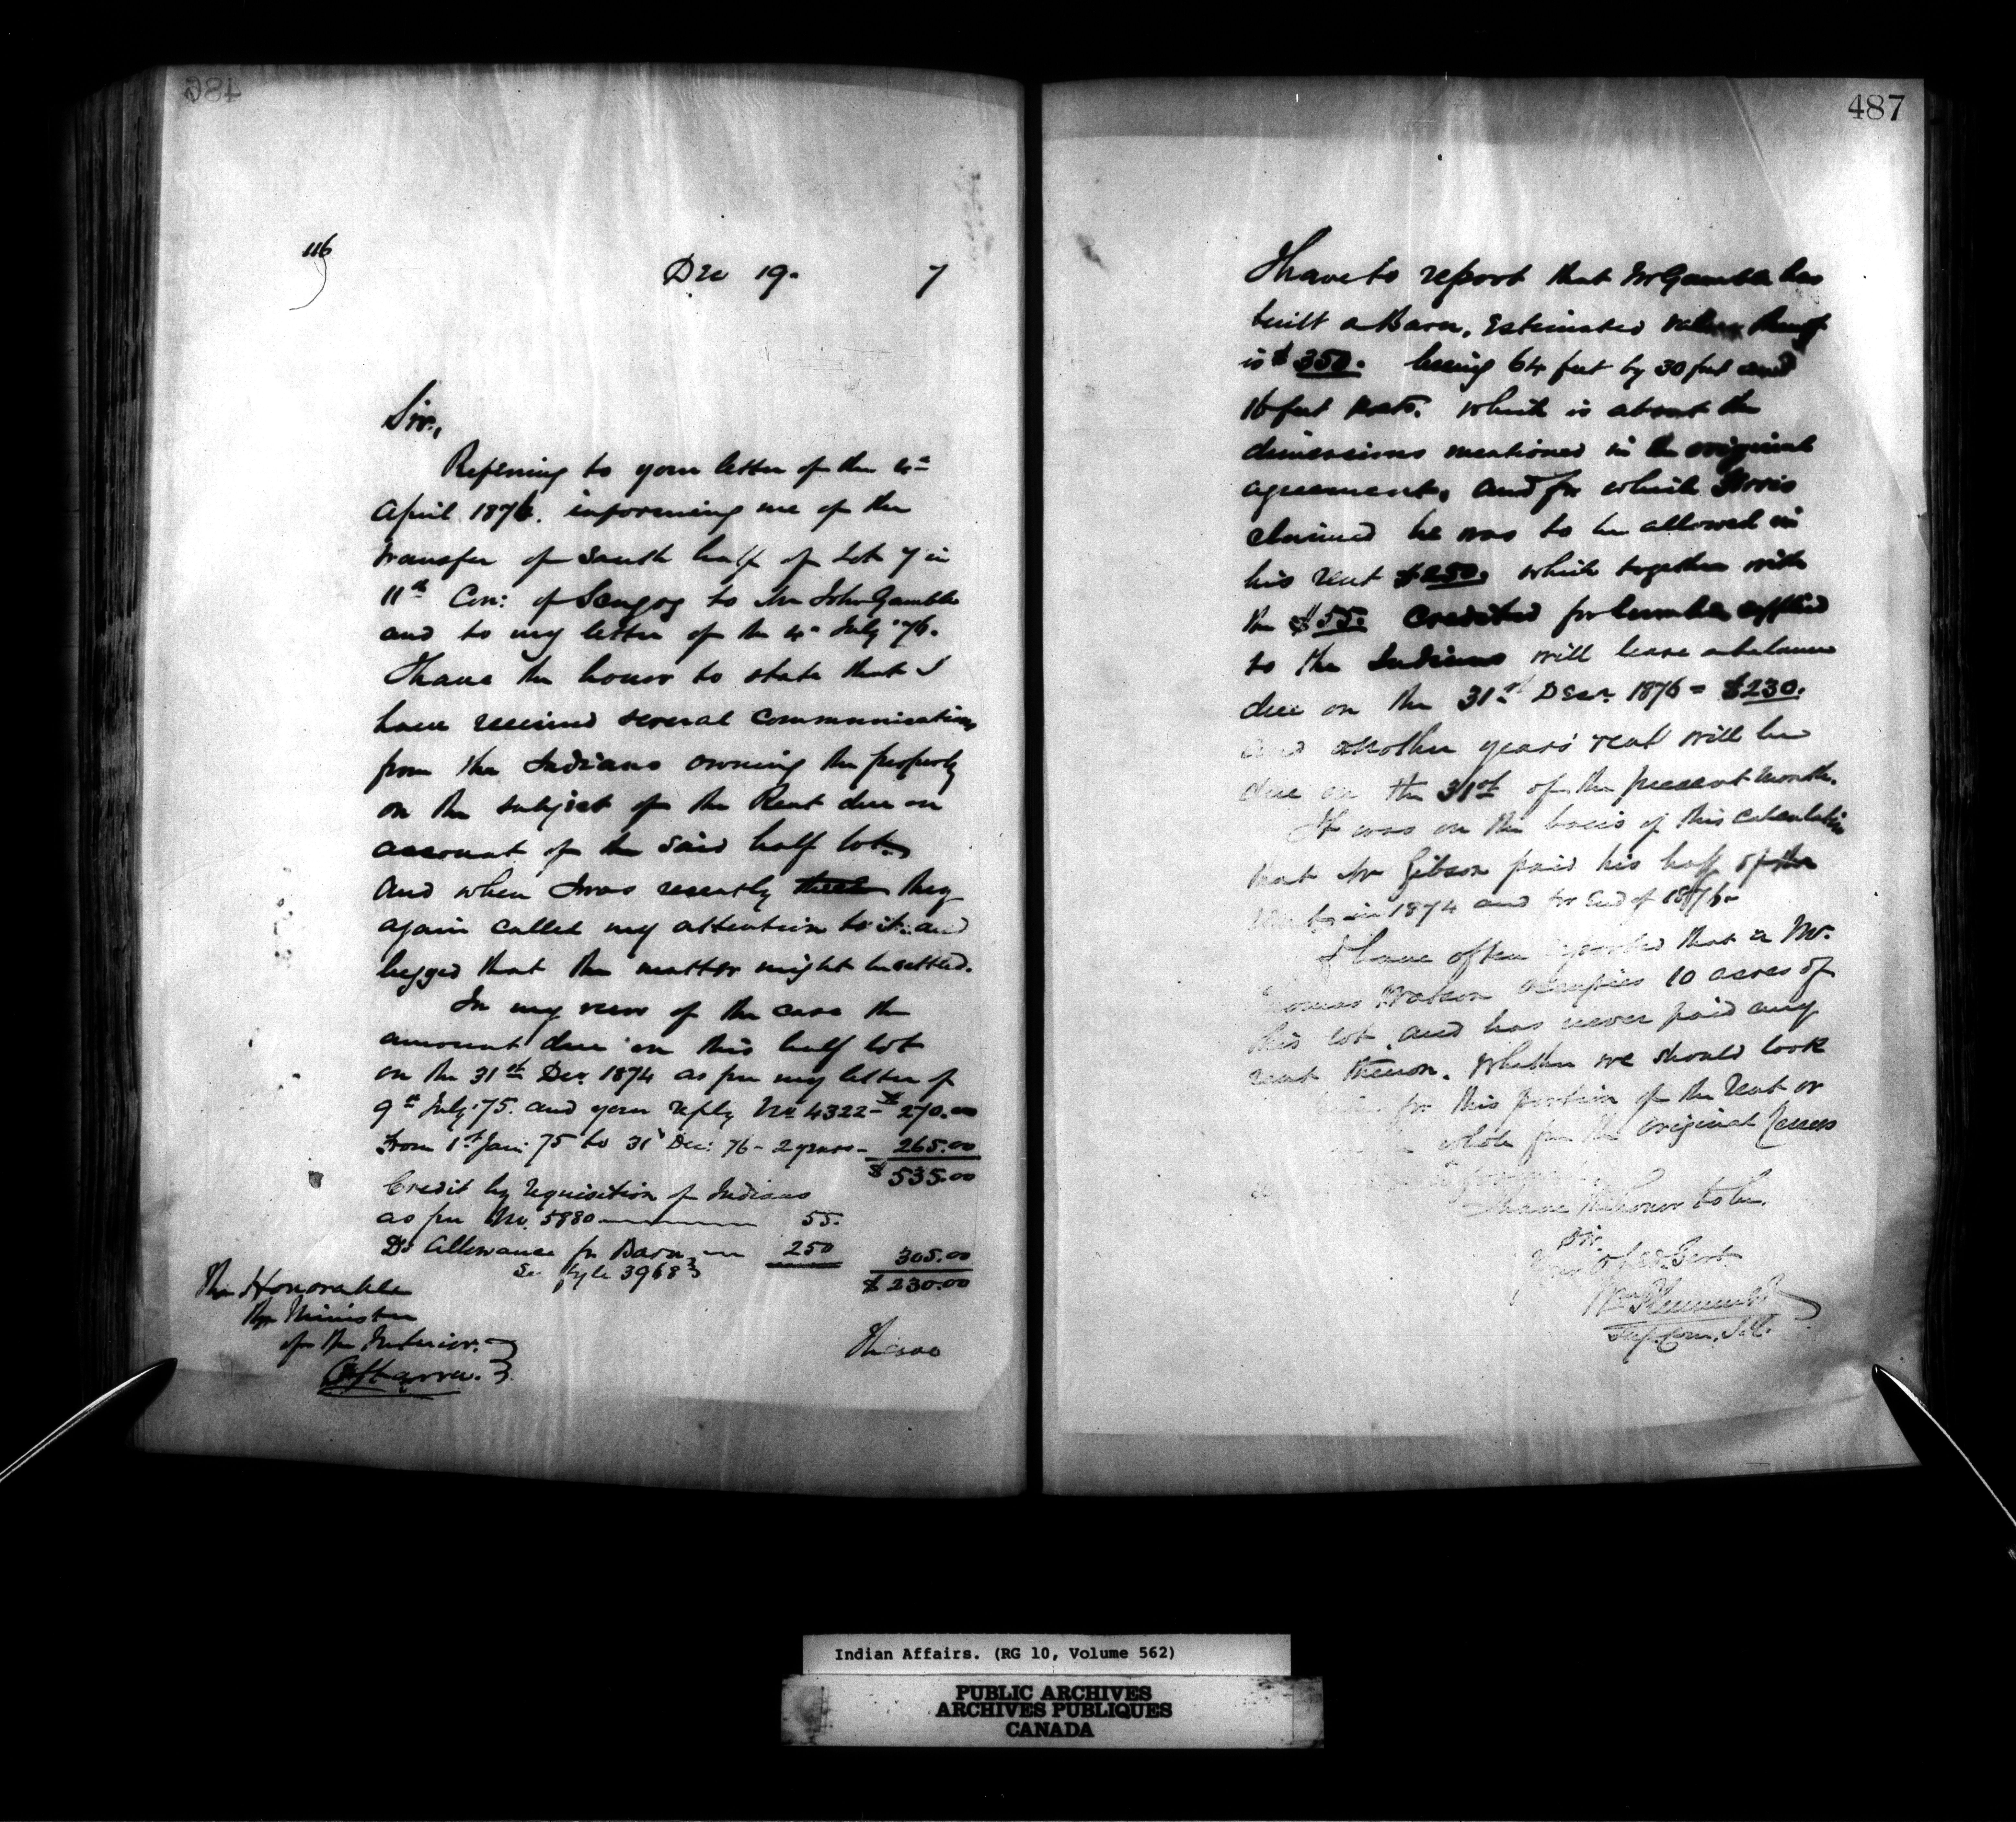 486
116
Dec 19. 7
Sir,
Referring to your letter of the 4th
April 1876. informing me of the
transfer of South half of Lot 7 in
11th Con: of Scugog to Mr John Gamble
and to my letter of the 4th July '76.
I have the honor to state that I
have received several communications
from the Indians owning the property
on the subject of the Rent due on
account of the said half lot.
And when I was recently they
again called my attention to it. and
begged that the matter might be settled.
In my view of the case the
amount due on this half lot
on the 31st Dec. 1874 as per my letter of
9th July '75. and your reply No 4322 - $270.00
From 1st Jan: 75 to 31st Dec: 76 - 2 years - 265.00
$535.00
Credit by requisition of Indians
as per No. 5880 55.
Do Allowance for Barn 250 305.00
See 3968 $230.00
The Honorable
The Minister
of the Interior.
Ottawa.
I have
487
I have to report that Mr Gamble has
built a Barn. Estimated value thereof
is $350. being 64 feet by 30 feet and
16 feet Posts. which is about the
dimensions mentioned in the original
agreement. and for which
claimed he was to be allowed in
his rent $250. which together with
the $55. credited for lumber supplied
to the Indians will leave a balance
due on the 31st Decr. 1876 = $230.
and another years rent will be
due on the 31st of the present month.
It was on the basis of this calculation
that Mr Gibson paid his half of the
in 1874 and to end of 1876.
I have often reported that a Mr.
Thomas Watson occupies 10 acres of
this lot and has never paid any
rent thereon. Whether we should look
for this portion of the Rent or
whole from the original Lessees
I have the honor to be.
Sir.
Your Obed. Servt.
Wm Plummer
Sup. Com. I.A.
Indian Affairs. (RG 10, Volume 562)
PUBLIC ARCHIVES
ARCHIVES PUBLIQUES
CANADA